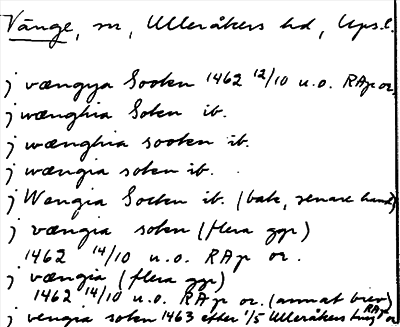 Vänge, sn, Ulleråkers hd, Upsl.
j vængya Sooken 1462 12/10 u.o. RAp or.
j wænghia Soken ib.
j wænghia sooken ib.
j wængia soken ib.
j Wengia Socken ib. (baks, senare hand)
j vængia soken (flera ggr)
1462 14/10 u.o. RAp or.
j vængia (flera ggr)
1462 14/10 u.o. RAp or. (annat brev)
j vengia soken 1463 efter 1/5 Ulleråkers ting RAp or